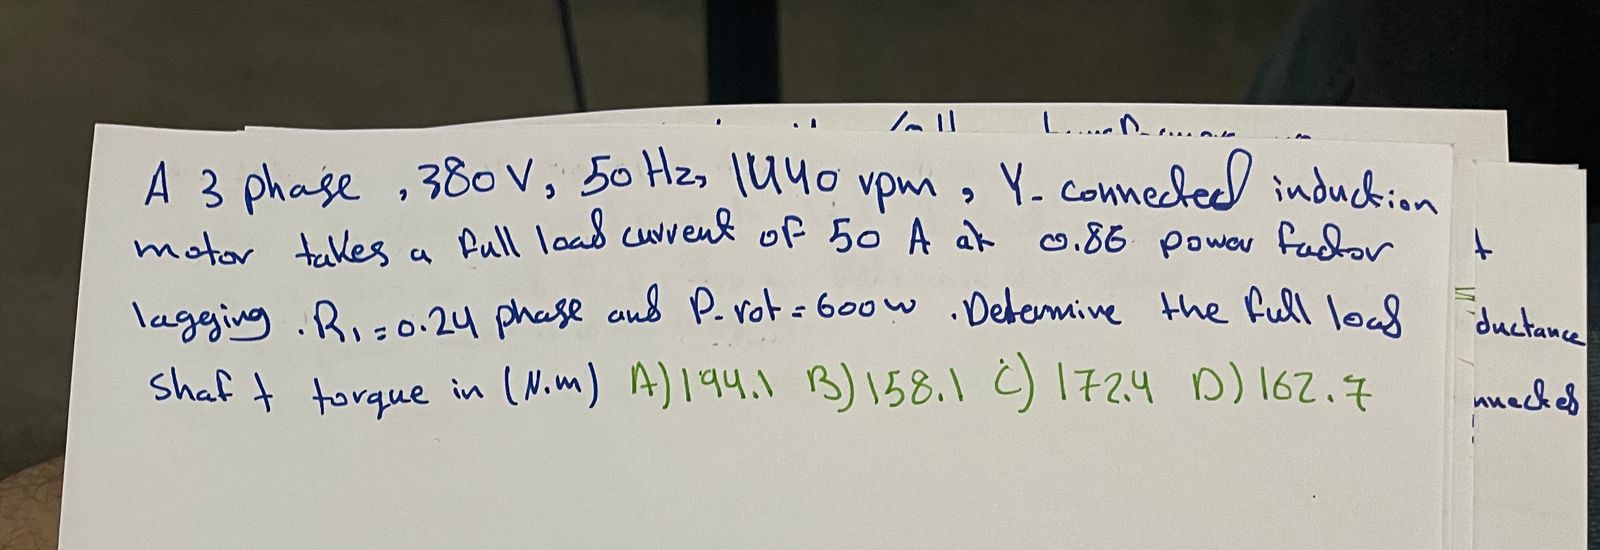 A 3 phase , 380 V, 50 Hz, 1440 rpm , Y- connected induction
motor takes a full load current of 50 A at 0.86 power factor
lagging . R1 = 0.24 phase and P-rot = 600 w . Determine the full load
shaft torque in (N.m) A) 194.1 B) 158.1 C) 172.4 D) 162.7
ductance